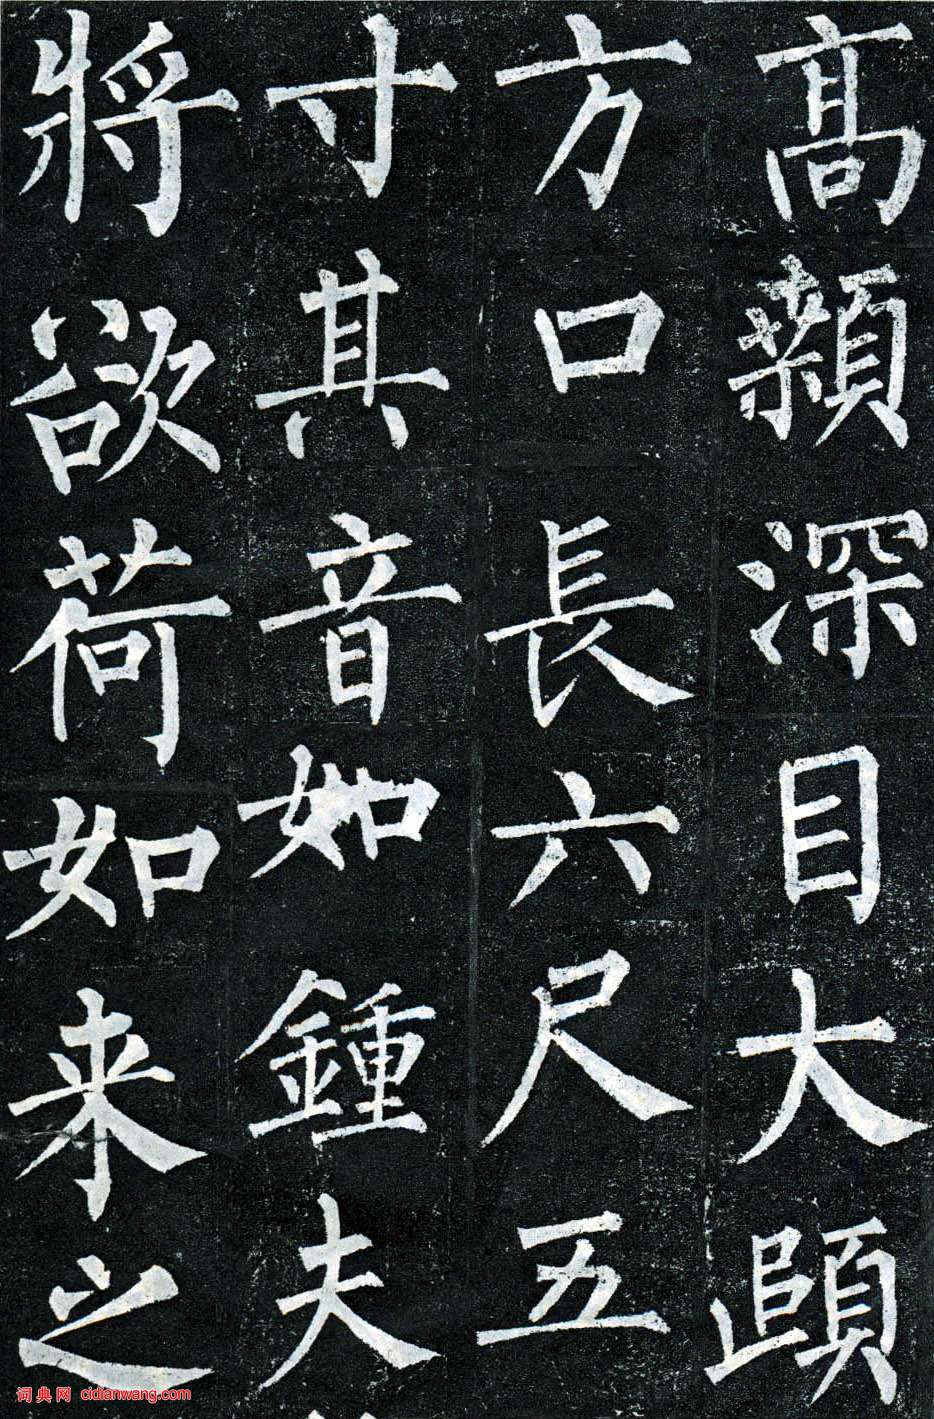 髙顙深目大頤
方口長六尺五
寸其音如鍾夫
將欲荷如来之
词典网 cidianwang.com